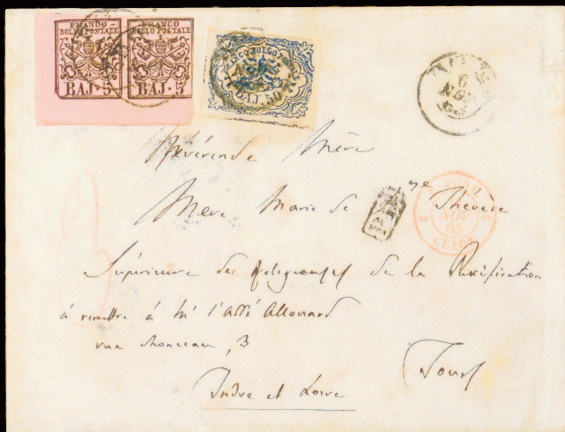 FRANCO BOLLO POSTALE
BAJ. 5
FRANCO BOLLO POSTALE
BAJ. 5
FRANCO BOLLO POSTALE
BAJ. 50
6
NOV
Révérende Mère
Mère Marie de Ste Thérèse
Supérieure des Religieuses de la Purification
à remettre à Mr l'Abbé Allouard
rue 3
Tours
Indre et Loire